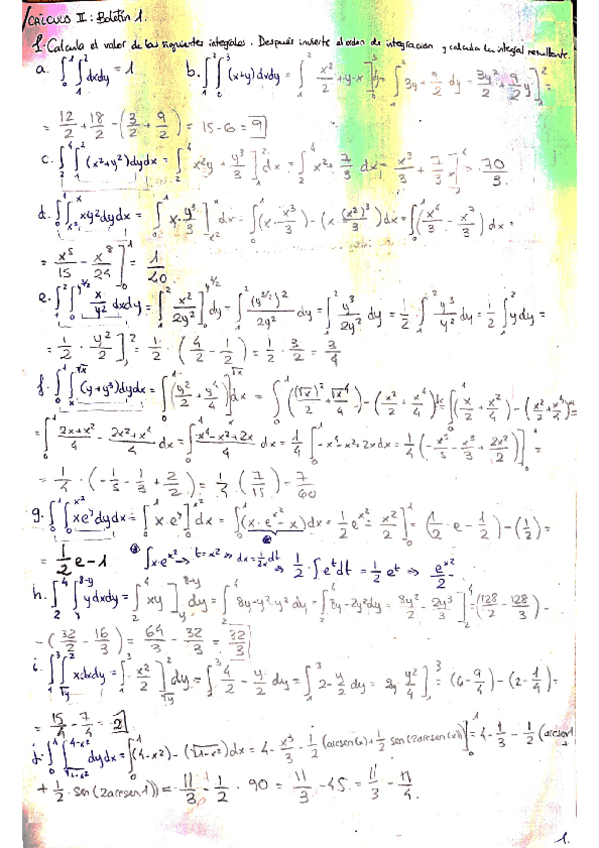 CÁLCULO II: Boletín 1.
1. Calcula el valor de las siguientes integrales. Después invierte el orden de integración y calcula la integral resultante.
a. ∫₀¹∫₁² dxdy = 1 b. ∫₁²∫₀³ (x+y)dxdy = ∫₁² x²/2 + y·x ]₀³ dy = ∫₁² 3y + 9/2 dy = 3y²/2 + 9/2 y ]₁² =
= 12/2 + 18/2 - (3/2 + 9/2) = 15-6 = 9
c. ∫₂⁴∫₁² (x²+y²)dydx = ∫₂⁴ x²y + y³/3 ]₁² dx = ∫₂⁴ x² + 7/3 dx = x³/3 + 7/3 x ]₂⁴ = 70/3
d. ∫₀¹∫ xy²dydx = ∫₀¹ x·y³/3 ] dx = ∫₀¹ (x·x³/3) - (x (x²)³/3) dx = ∫₀¹ (x⁴/3 - x⁷/3) dx =
= x⁵/15 - x⁸/24 ]₀¹ = 1/40
e. ∫₁²∫₀^{y^{3/2}} x/y² dxdy = ∫₁² x²/2y² ]₀^{y^{3/2}} dy = ∫₁² (y^{3/2})²/2y² dy = ∫₁² y³/2y² dy = 1/2 · ∫₁² y³/y² dy = 1/2 ∫₁² y dy =
= 1/2 · y²/2 ]₁² = 1/2 · (4/2 - 1/2) = 1/2 · 3/2 = 3/4
f. ∫₀¹∫ₓ^{√x} (y+y³)dydx = ∫₀¹ (y²/2 + y⁴/4) ]ₓ^{√x} dx = ∫₀¹ ((√x)²/2 + √x⁴/4) - (x²/2 + x⁴/4) dx = ∫₀¹ (x/2 + x²/4) - (x²/2 + x⁴/4) dx =
= ∫₀¹ 2x+x²/4 - 2x²+x⁴/4 dx = ∫₀¹ -x⁴-x²+2x/4 dx = 1/4 ∫₀¹ -x⁴-x²+2x dx = 1/4 (-x⁵/5 - x³/3 + 2x²/2) ]₀¹ =
= 1/4 · (-1/5 - 1/3 + 2/2) = 1/4 · (7/15) = 7/60
g. ∫₀¹∫₀^{x²} xe^y dydx = ∫₀¹ x·e^y ]₀^{x²} dx = ∫₀¹ (x·e^{x²} - x) dx = 1/2 e^{x²} - x²/2 ]₀¹ = (1/2 · e - 1/2) - (1/2) =
= 1/2 e - 1 ∫x·e^{x²} → t=x² ⇒ dx = 1/2x dt ⇒ 1/2 · ∫e^t dt = 1/2 e^t ⇒ e^{x²}/2
h. ∫₂⁴∫ᵧ^{8-y} ydxdy = ∫₂⁴ xy ]ᵧ^{8-y} dy = ∫₂⁴ 8y-y²-y² dy = ∫₂⁴ 8y-2y² dy = 8y²/2 - 2y³/3 ]₂⁴ = (128/2 - 128/3) -
- (32/2 - 16/3) = 64/3 - 32/3 = 32/3
i. ∫₁³∫_{√y}² xdxdy = ∫₁³ x²/2 ]_{√y}² dy = ∫₁³ 4/2 - y/2 dy = ∫₁³ 2 - y/2 dy = 2y - y²/4 ]₁³ = (6 - 9/4) - (2 - 1/4) =
= 15/4 - 7/4 = 2
j. ∫₀¹∫_{√1-x²}^{4-x²} dydx = ∫₀¹ (4-x²) - (√1-x²) dx = 4 - x³/3 - 1/2 (arcsen(x) + 1/2 sen(2arcsen(x))) ]₀¹ = 4 - 1/3 - 1/2 (arcsen1 +
+ 1/2 · sen(2arcsen1)) = 11/3 - 1/2 · 90 = 11/3 - 45 = 11/3 - π/4.
1.